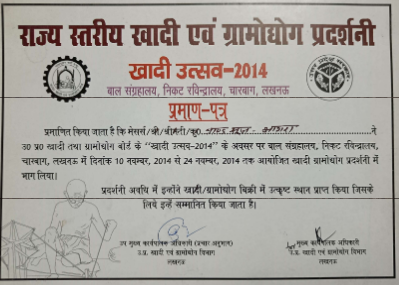 राज्य स्तरीय खादी एवं ग्रामोद्योग प्रदर्शनी
खादी उत्सव-2014
बाल संग्रहालय, निकट रविन्द्रालय, चारबाग, लखनऊ
प्रमाण-पत्र
प्रमाणित किया जाता है कि मेसर्स/श्री/श्रीमती/कु0 ने
उ0 प्र0 खादी तथा ग्रामोद्योग बोर्ड के "खादी उत्सव-2014" के अवसर पर बाल संग्रहालय, निकट रविन्द्रालय,
चारबाग, लखनऊ में दिनांक 10 नवम्बर, 2014 से 24 नवम्बर, 2014 तक आयोजित खादी ग्रामोद्योग प्रदर्शनी में
भाग लिया।
प्रदर्शनी अवधि में इन्होंने खादी/ग्रामोद्योग बिक्री में उत्कृष्ट स्थान प्राप्त किया जिसके
लिये इन्हें सम्मानित किया जाता है।
उप मुख्य कार्यपालक अधिकारी
उ.प्र. खादी एवं ग्रामोद्योग विभाग
लखनऊ
मुख्य कार्यपालक अधिकारी
उ.प्र. खादी एवं ग्रामोद्योग विभाग
लखनऊ